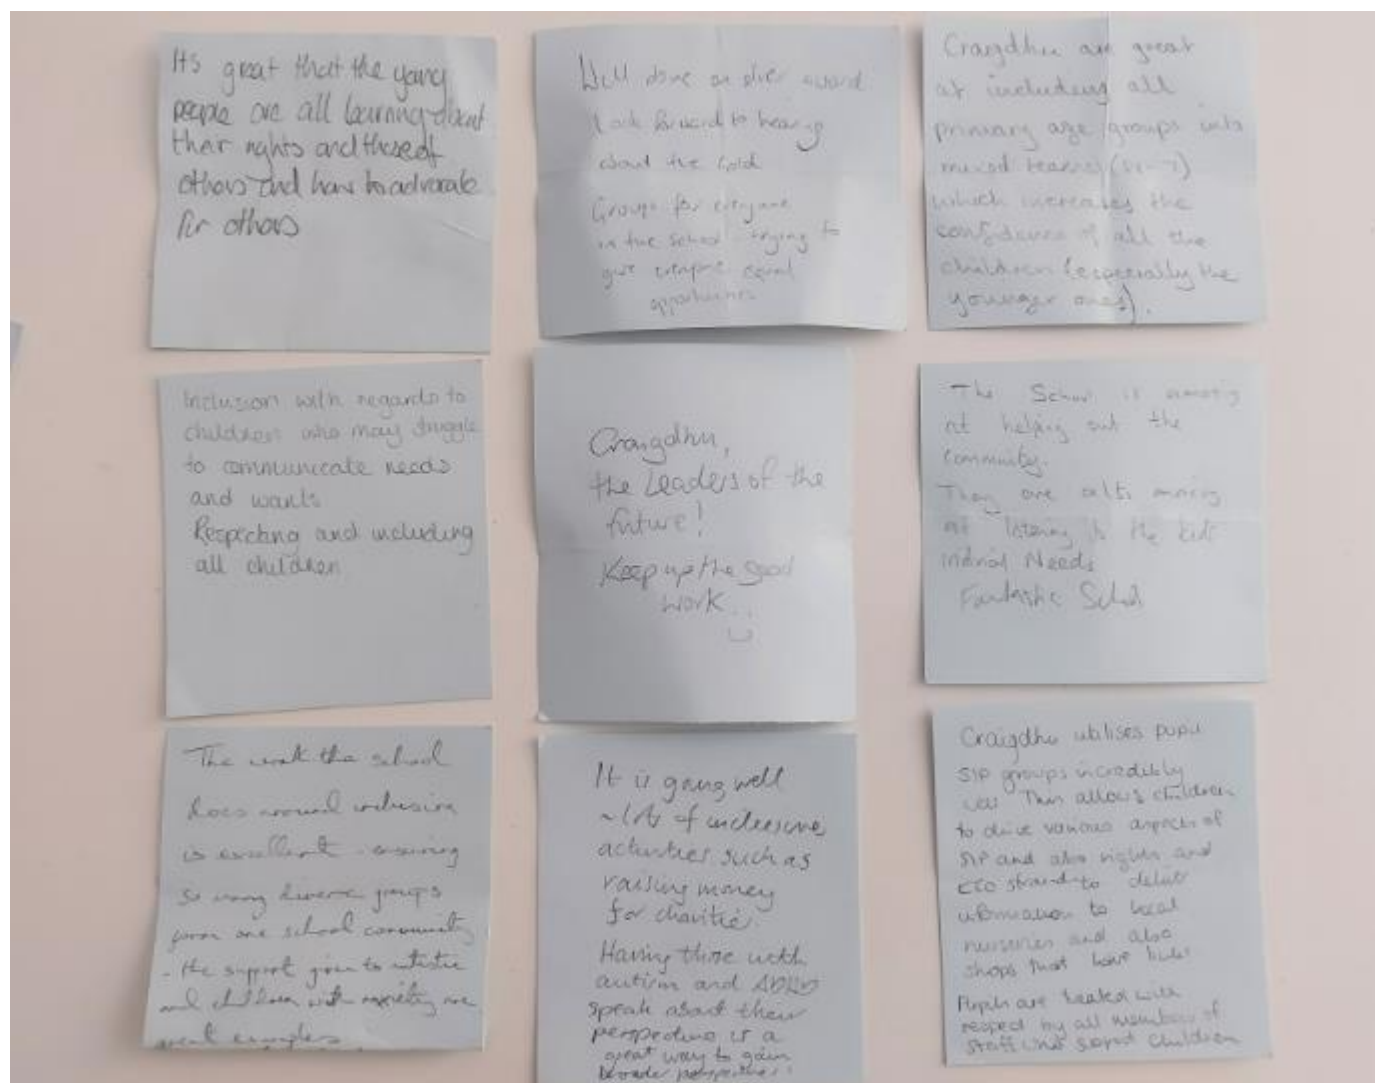 Its great that the young
people are all learning about
their rights and those of
others and how to advocate
for others
Well done on silver award
Look forward to hearing
about the Gold
Groups for everyone
in the school trying to
give everyone equal
opportunities
Craigdhu are great
at including all
primary age groups into
mixed teams
which increases the
confidence of all the
children (especially the
younger ones).
Inclusion with regards to
children who may struggle
to communicate needs
and wants
Respecting and including
all children
Craigdhu,
the Leaders of the
future!
Keep up the good
work
The School is amazing
at helping out the
community.
They are amazing
at listening to the kids
Needs
Fantastic School
The work the school
does around inclusion
is excellent - ensuring
so many diverse groups
form one school community
- the support given to autistic
and children with anxiety are
great examples
It is going well
~ lots of inclusive
activities such as
raising money
for charities.
Having those with
autism and ADHD
speak about their
perspective is a
great way to gain
broader perspective
Craigdhu utilises pupil
SIP groups incredibly
well This allows children
to drive various aspects of
SIP and also rights and
ECO strands to deliver
information to local
nurseries and also
shops that have links
Pupils are treated with
respect by all members of
staff who support children